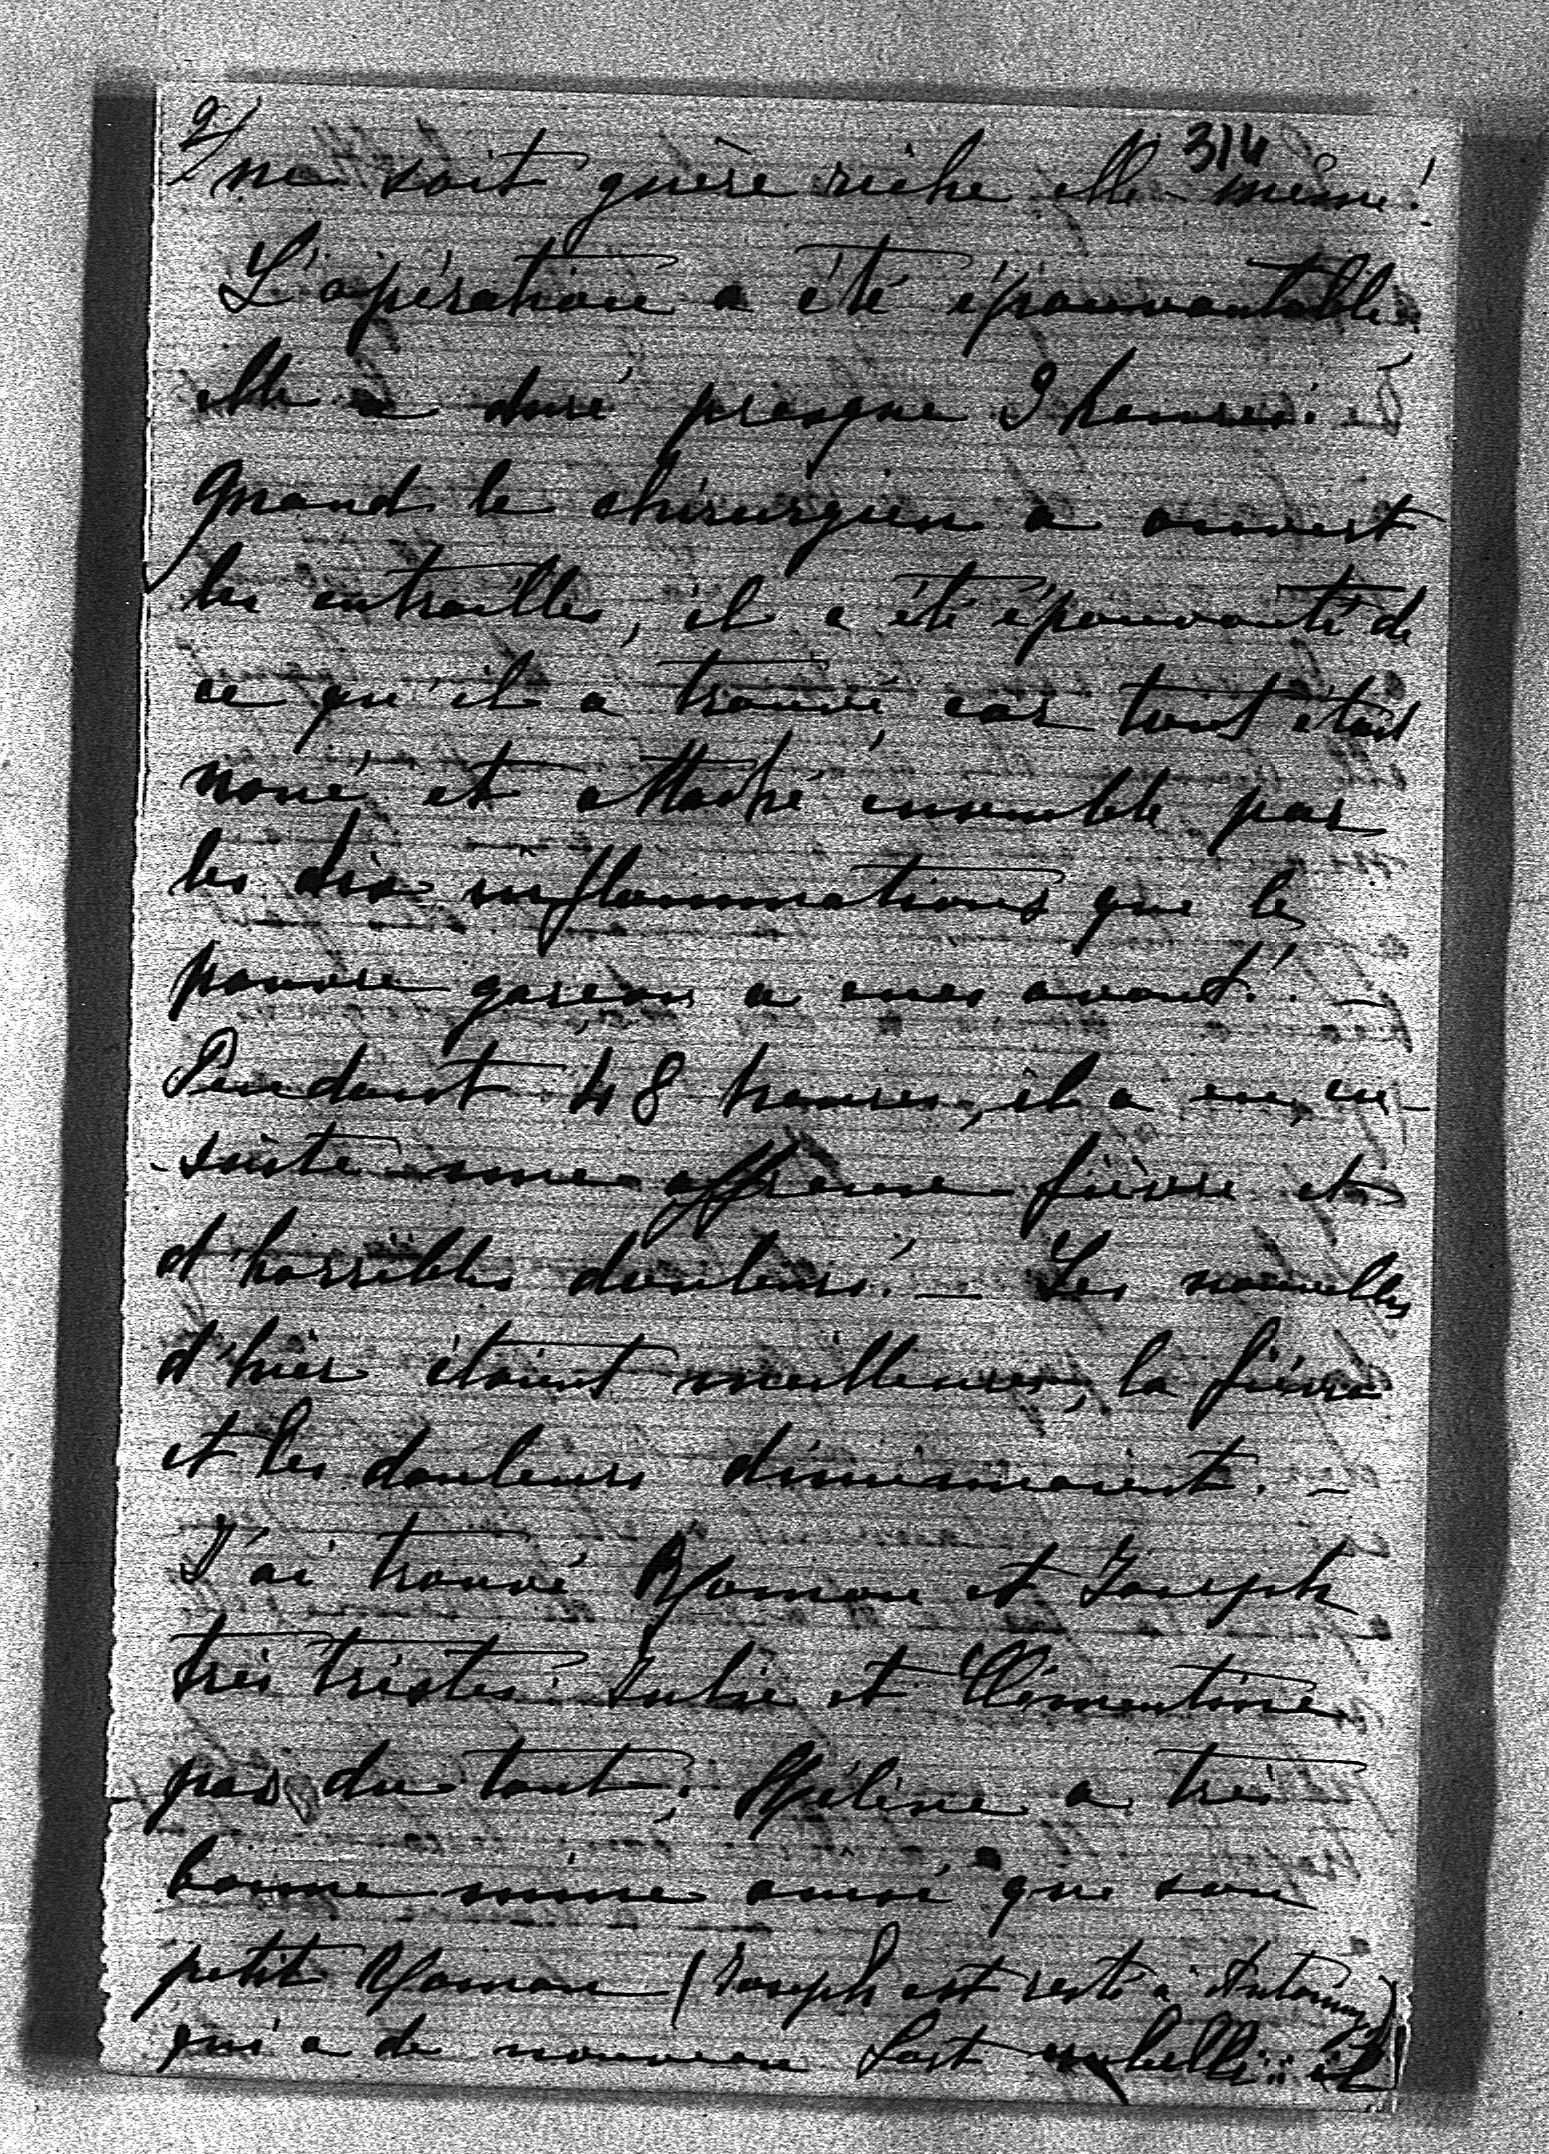 2/
314
ne soit guère riche elle-même!
L'opération a été épouvantable
elle a duré presque 3 heures.
Quand le chirurgien a ouvert
les entrailles, il a été épouvanté de
ce qu'il a trouvé car tout était
noué et attaché ensemble par
les dix inflammations que le
pauvre garçon a eues avant! –
Pendant 48 heures, il a eu, en-
suite une affreuse fièvre et
d'horribles douleurs! – Les nouvelles
d'hier étaient meilleures, la fièvre
et les douleurs diminuaient. –
J'ai trouvé et Joseph
très tristes. Julie et Clémentine
pas du tout; Hélène a très
bonne mine ainsi que son
petit (Joseph est resté à Antony)
qui a de nouveau embelli et